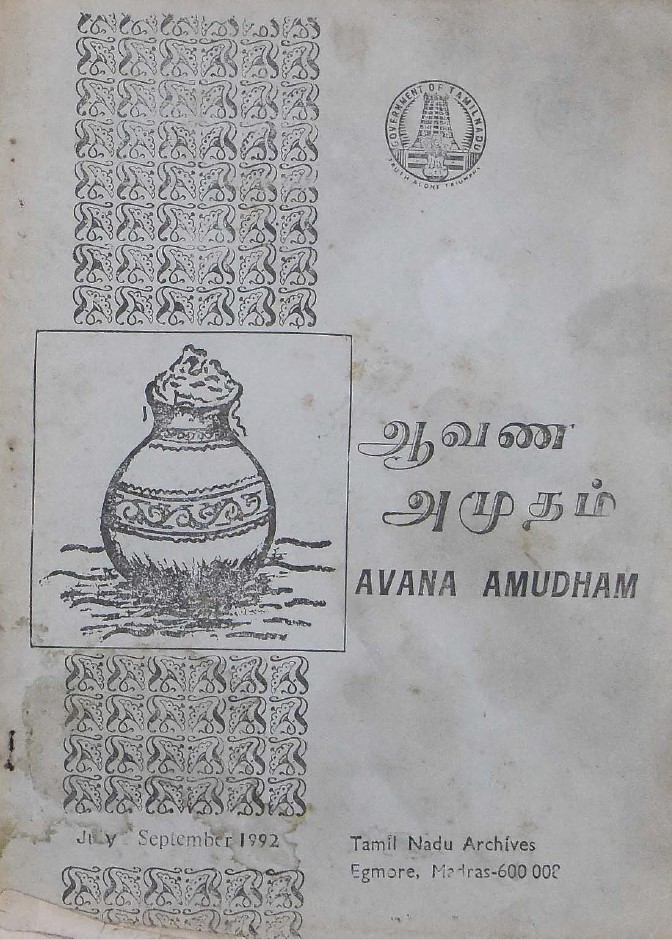 GOVERNMENT OF TAMILNADU
TRUTH ALONE TRIUMPHS
ஆவண
அமுதம்
AVANA AMUDHAM
July September 1992
Tamil Nadu Archives
Egmore, Madras-600 008